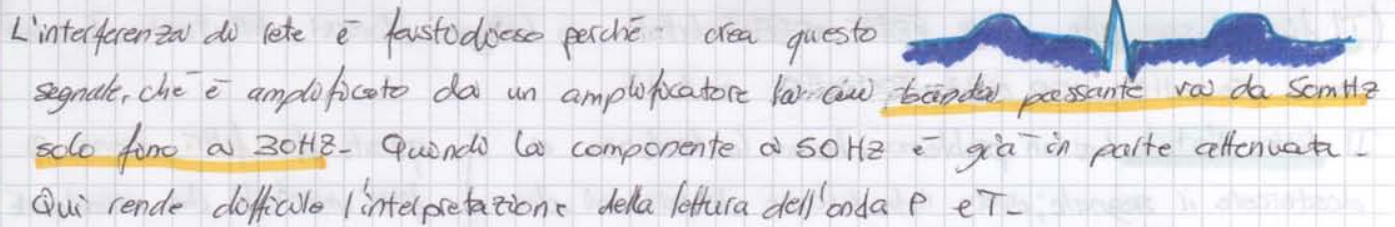 L'interferenza di rete è fastidiosa perché crea questo
segnale, che è amplificato da un amplificatore la cui banda passante va da 50mHz
solo fino a 30HZ. Quindi la componente a 50HZ è già in parte attenuata.
Qui rende difficile l'interpretazione della lettura dell'onda P e T.